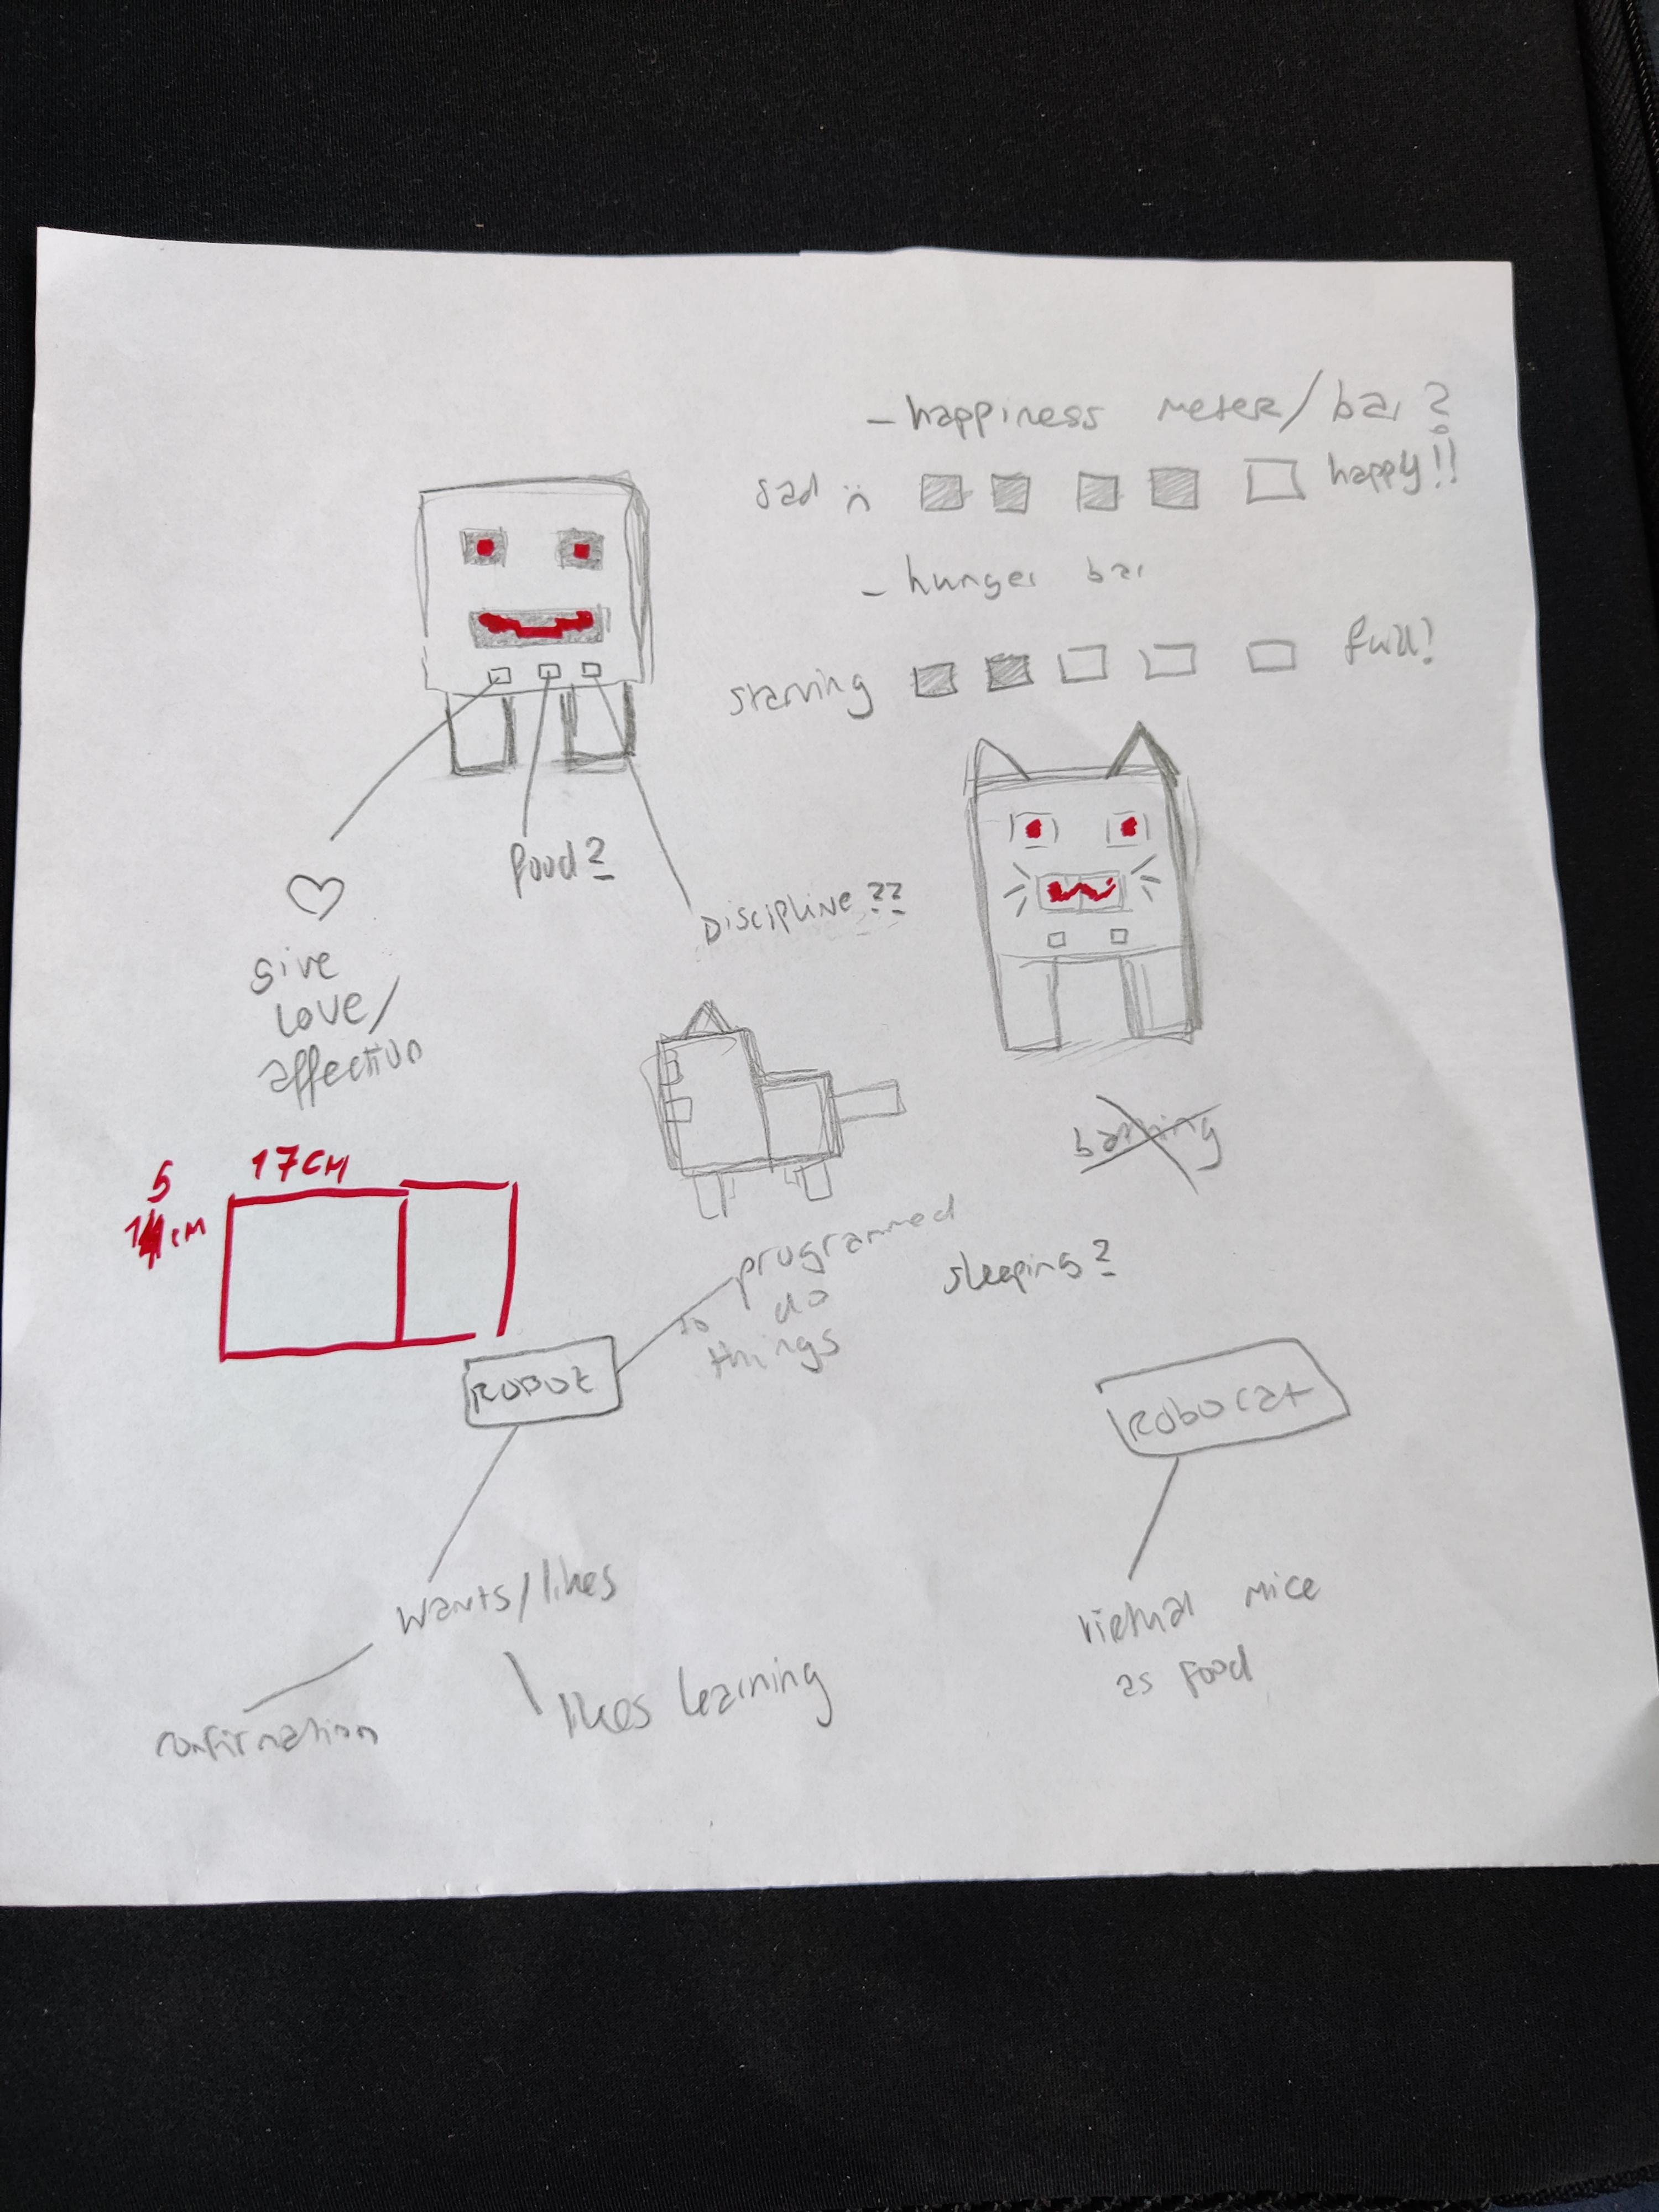 - happiness meter/bar?
sad :( happy!!
- hunger bar
starving full!
food?
Discipline??
give
love/
affection
bathing
17CM
5
1 cm
programmed
to do
things
sleeping?
ROBOT
Robocat
wants/likes
confirmation
likes learning
virtual mice
as food